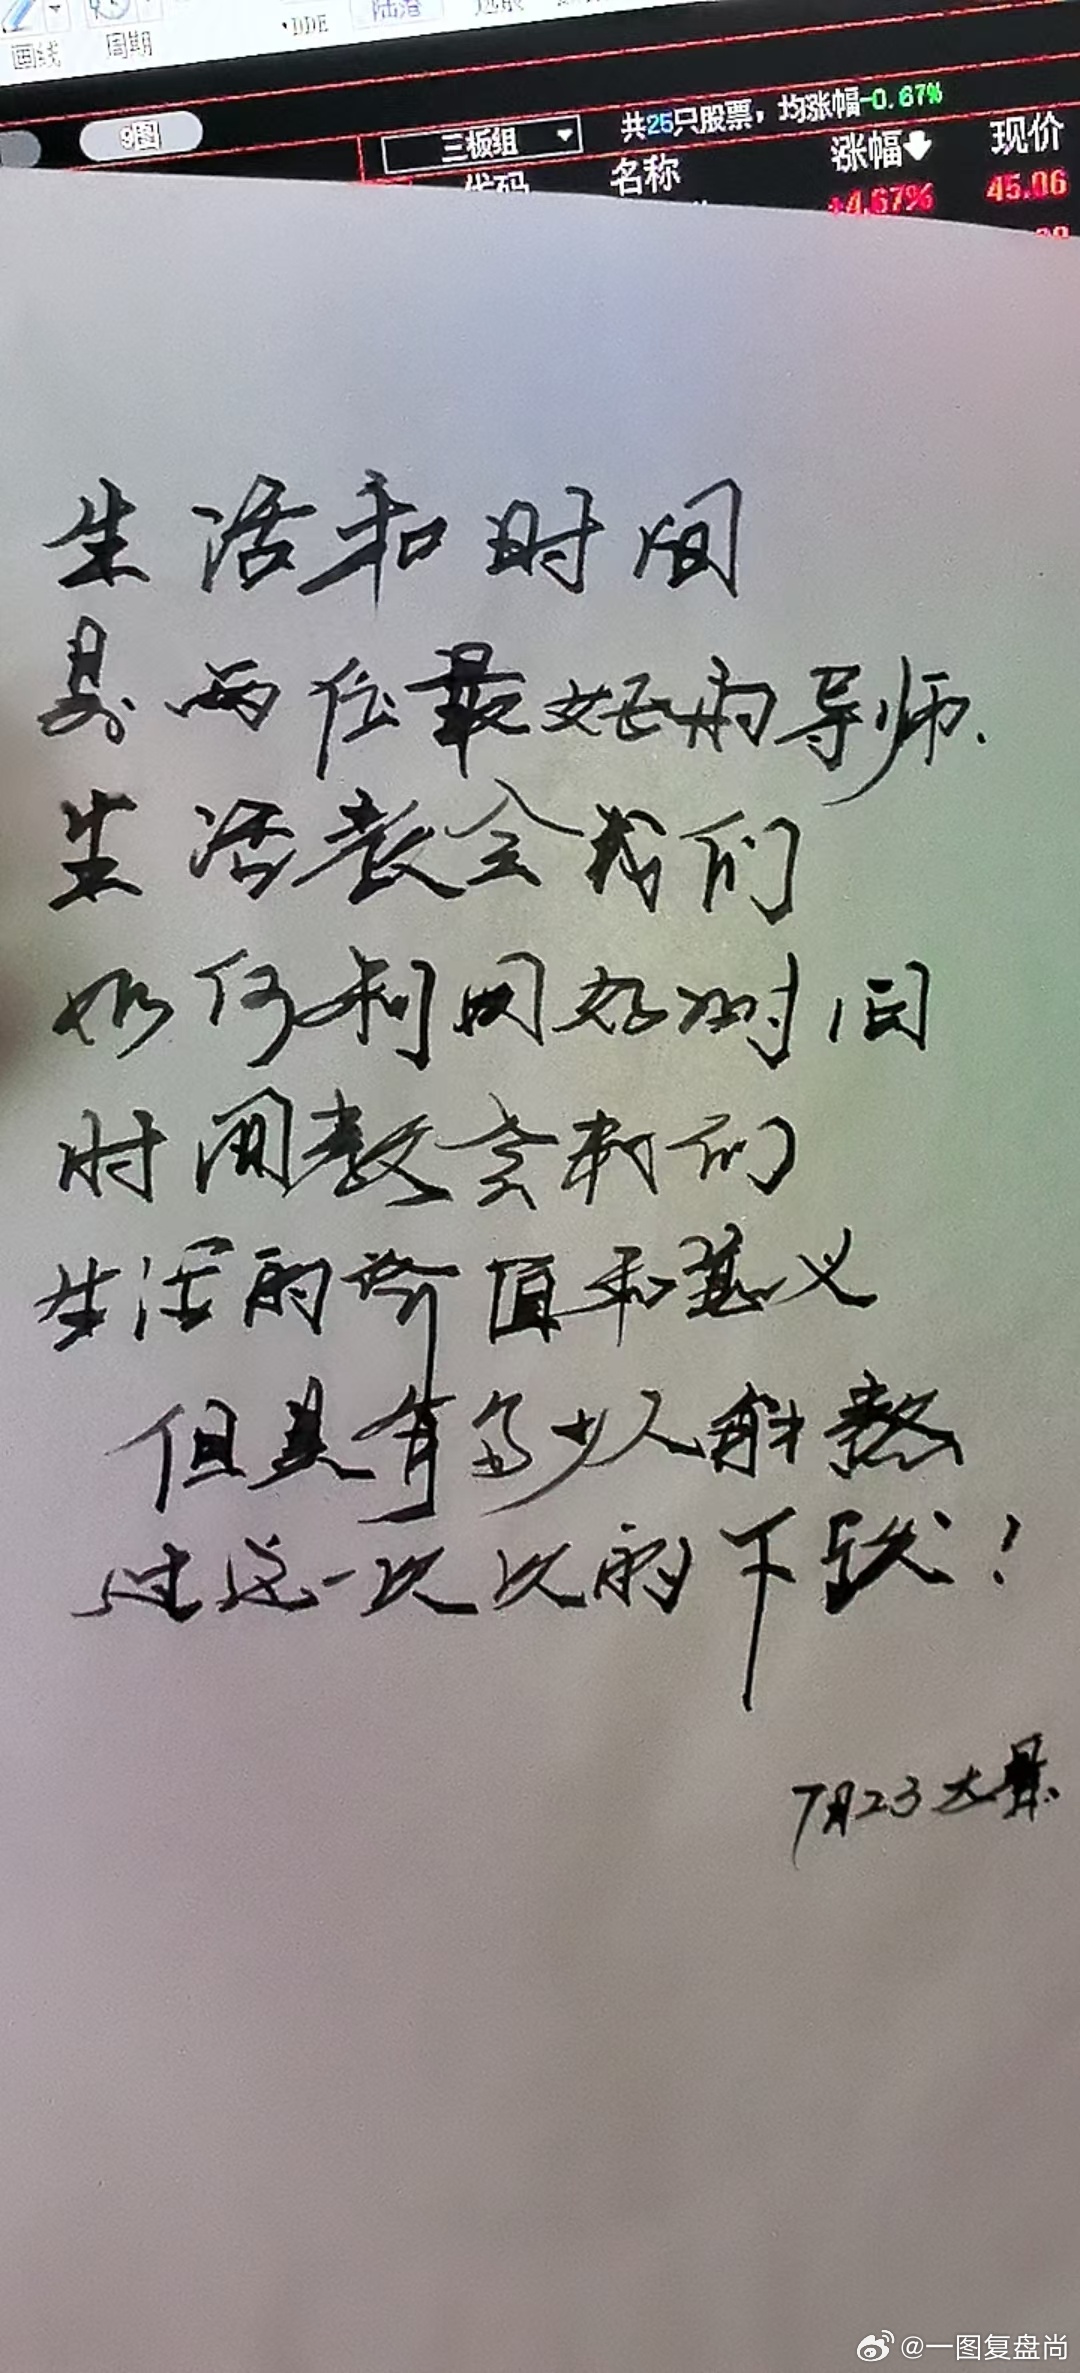 画线 周期 DDE
9图 三板组 共25只股票，均涨幅-0.67%
名称 涨幅 现价
+4.67% 45.06
生活和时间
是两位最好的导师.
生活教会我们
如何利用好时间
时间教会我们
生活的价值和意义
但是有多少人能熬
过这一次次的下跌！
7月23
@一图复盘尚